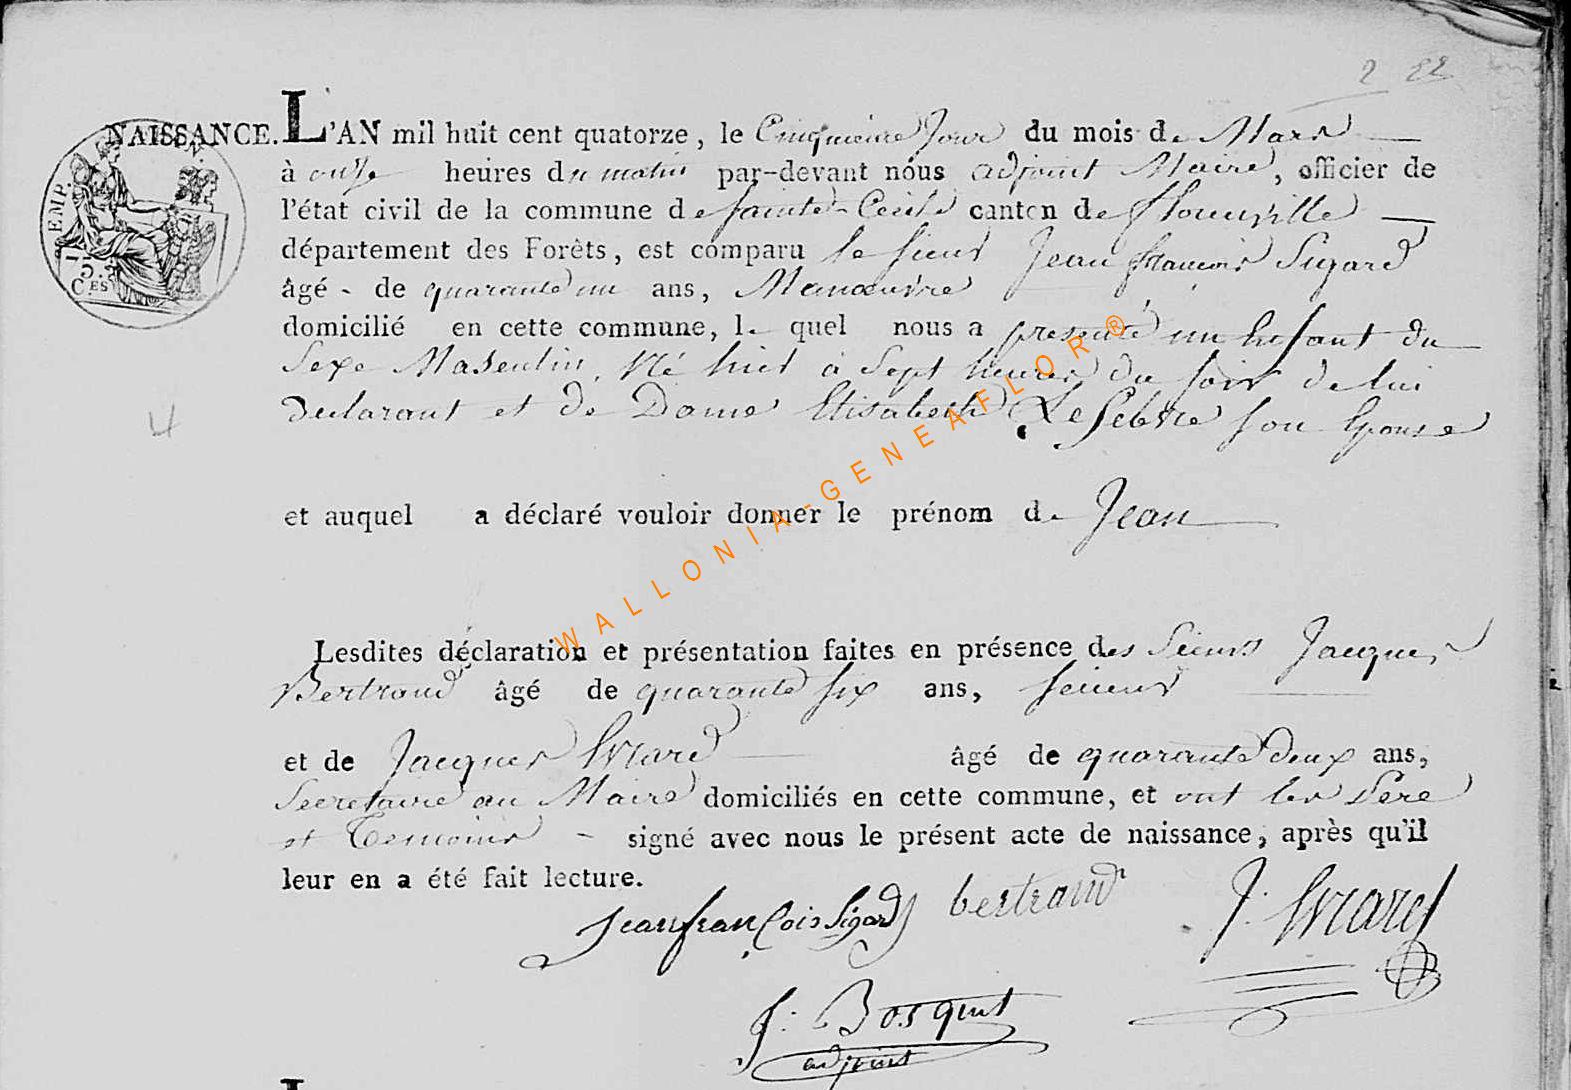 2 22
NAISSANCE. L'AN mil huit cent quatorze, le Cinquieme Jour du mois de Mars
à onze heures du matin par-devant nous adjoint Maire, officier de
l'état civil de la commune de Sainte-Cecile canton de florenville
département des Forêts, est comparu le sieur Jean françois Sigard
âgé de quarante un ans, Manœuvre
domicilié en cette commune, le quel nous a presenté un Enfant du
Sexe Masculin, Né hier à Sept heures du soir de lui
declarant et de Dame Elisabeth Le Febvre son Epouse
et auquel a déclaré vouloir donner le prénom de Jean
Lesdites déclaration et présentation faites en présence des Sieurs Jacques
Bertrand âgé de quarante six ans,
et de Jacques Evrard âgé de quarante deux ans,
Secretaire au Maire domiciliés en cette commune, et ont les Pere
et Temoins signé avec nous le présent acte de naissance, après qu'il
leur en a été fait lecture.
jean fran çois Sigard bertrand J: Evrard
J: Bosquet
adjoint
EMP.
5.
C.ES
4
WALLONIA-GENEAFLOR®